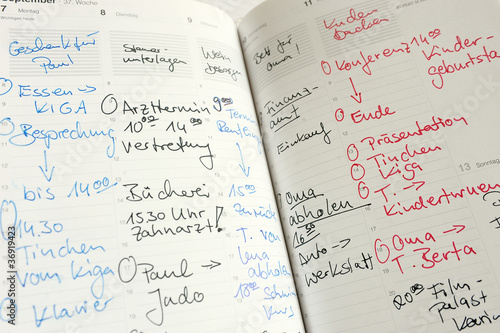 September
37. Woche
7
Montag
8
Dienstag
9
Geschenk für
Paul
Steuer-
unterlagen
Wein
besorgen
Essen →
KIGA
Besprechung
bis 14.00
14.30
Tinchen
vom Kiga
Klavier
Arzttermin 9.00
10.00 - 14.00
Vertretung
Bücherei
15.30 Uhr
Zahnarzt!
Paul →
Judo
15.00
zurück
T. von
Uma
abholen
18.00
kurs
10
11
Bett für
Oma!
Finanz-
amt
Einkauf
Oma
abholen
16.30
Auto →
Werkstatt
Kuchen
backen
Konferenz 14.00
Kinder-
geburtstag
Ende
Präsentation
Tinchen
Kiga
T. →
Kinderturnen
Oma →
T. Berta
13 Sonntag
20.00 Film-
palast
36919423